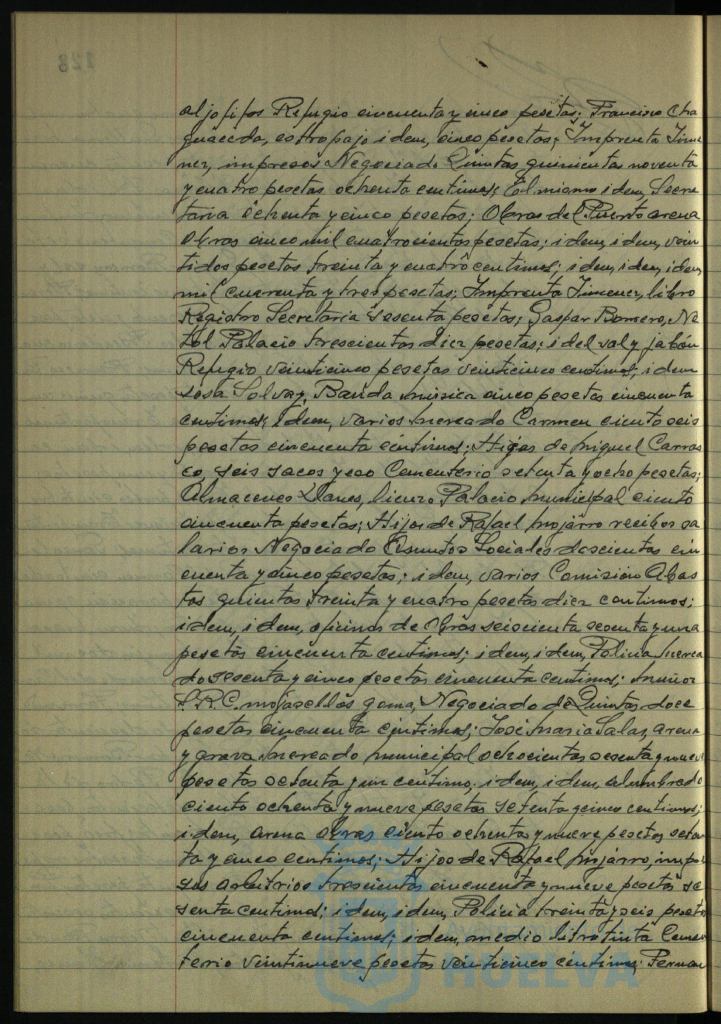 128
aljofifas Refugio cincuenta y cinco pesetas; Francisco Cha
guaceda, estropajo idem, cinco pesetas; Imprenta Jime
nez, impresos Negociado Quintas quinientas noventa
y cuatro pesetas ochenta centimos; El mismo idem, Secre
taria ochenta y cinco pesetas; Obras del Puerto arena
obras cinco mil cuatrocientas pesetas; idem, idem, vein
tidos pesetas treinta y cuatro centimos; idem, idem, idem
mil cuarenta y tres pesetas; Imprenta Jimenez, libro
Registro Secretaria sesenta pesetas; Gaspar Borrero, Ne
tol Palacio trescientas diez pesetas; i del sal y jabon
Refugio veinticinco pesetas veinticinco centimos; idem
sosa Solvay, Banda musica cinco pesetas cincuenta
centimos; idem, varios Mercado Carmen ciento seis
pesetas cincuenta centimos; Hijos de Miguel Carras
co, seis sacos yeso Cementerio setenta y ocho pesetas;
Almacenes Llanes, lienzo Palacio Municipal ciento
cincuenta pesetas; Hijos de Rafael Mojarro recibos sa
larios Negociado Asuntos Sociales doscientas cin
cuenta y cinco pesetas; idem, varios Comision Abas
tos quientas treinta y cuatro pesetas diez centimos;
idem, idem, oficinas de Obras seiscienta sesenta y una
pesetas cincuenta centimos; idem, idem, Policia Merca
do sesenta y cinco pesetas cincuenta centimos; Muñoz
S.R.C. mojasellos goma, Negociado de Quintas doce
pesetas cincuenta centimos; José Maria Salas, arena
y grava Mercado Municipal ochocientas sesenta y nueve
pesetas setenta y un centimo, idem, idem, alumbrado
ciento ochenta y nueve pesetas setenta y cinco centimos;
idem, arena obras ciento ochenta y nueve pesetas seten
ta y cinco centimos; Hijos de Rafael Mojarro, impre
sos arbitrios trescientas cincuenta y nueve pesetas se
senta centimos; idem, idem, Policia treinta y seis pesetas
cincuenta centimos; idem, medio litro tinta Cemen
terio veintinueve pesetas veinticinco centimos; Fernan
HUELVA